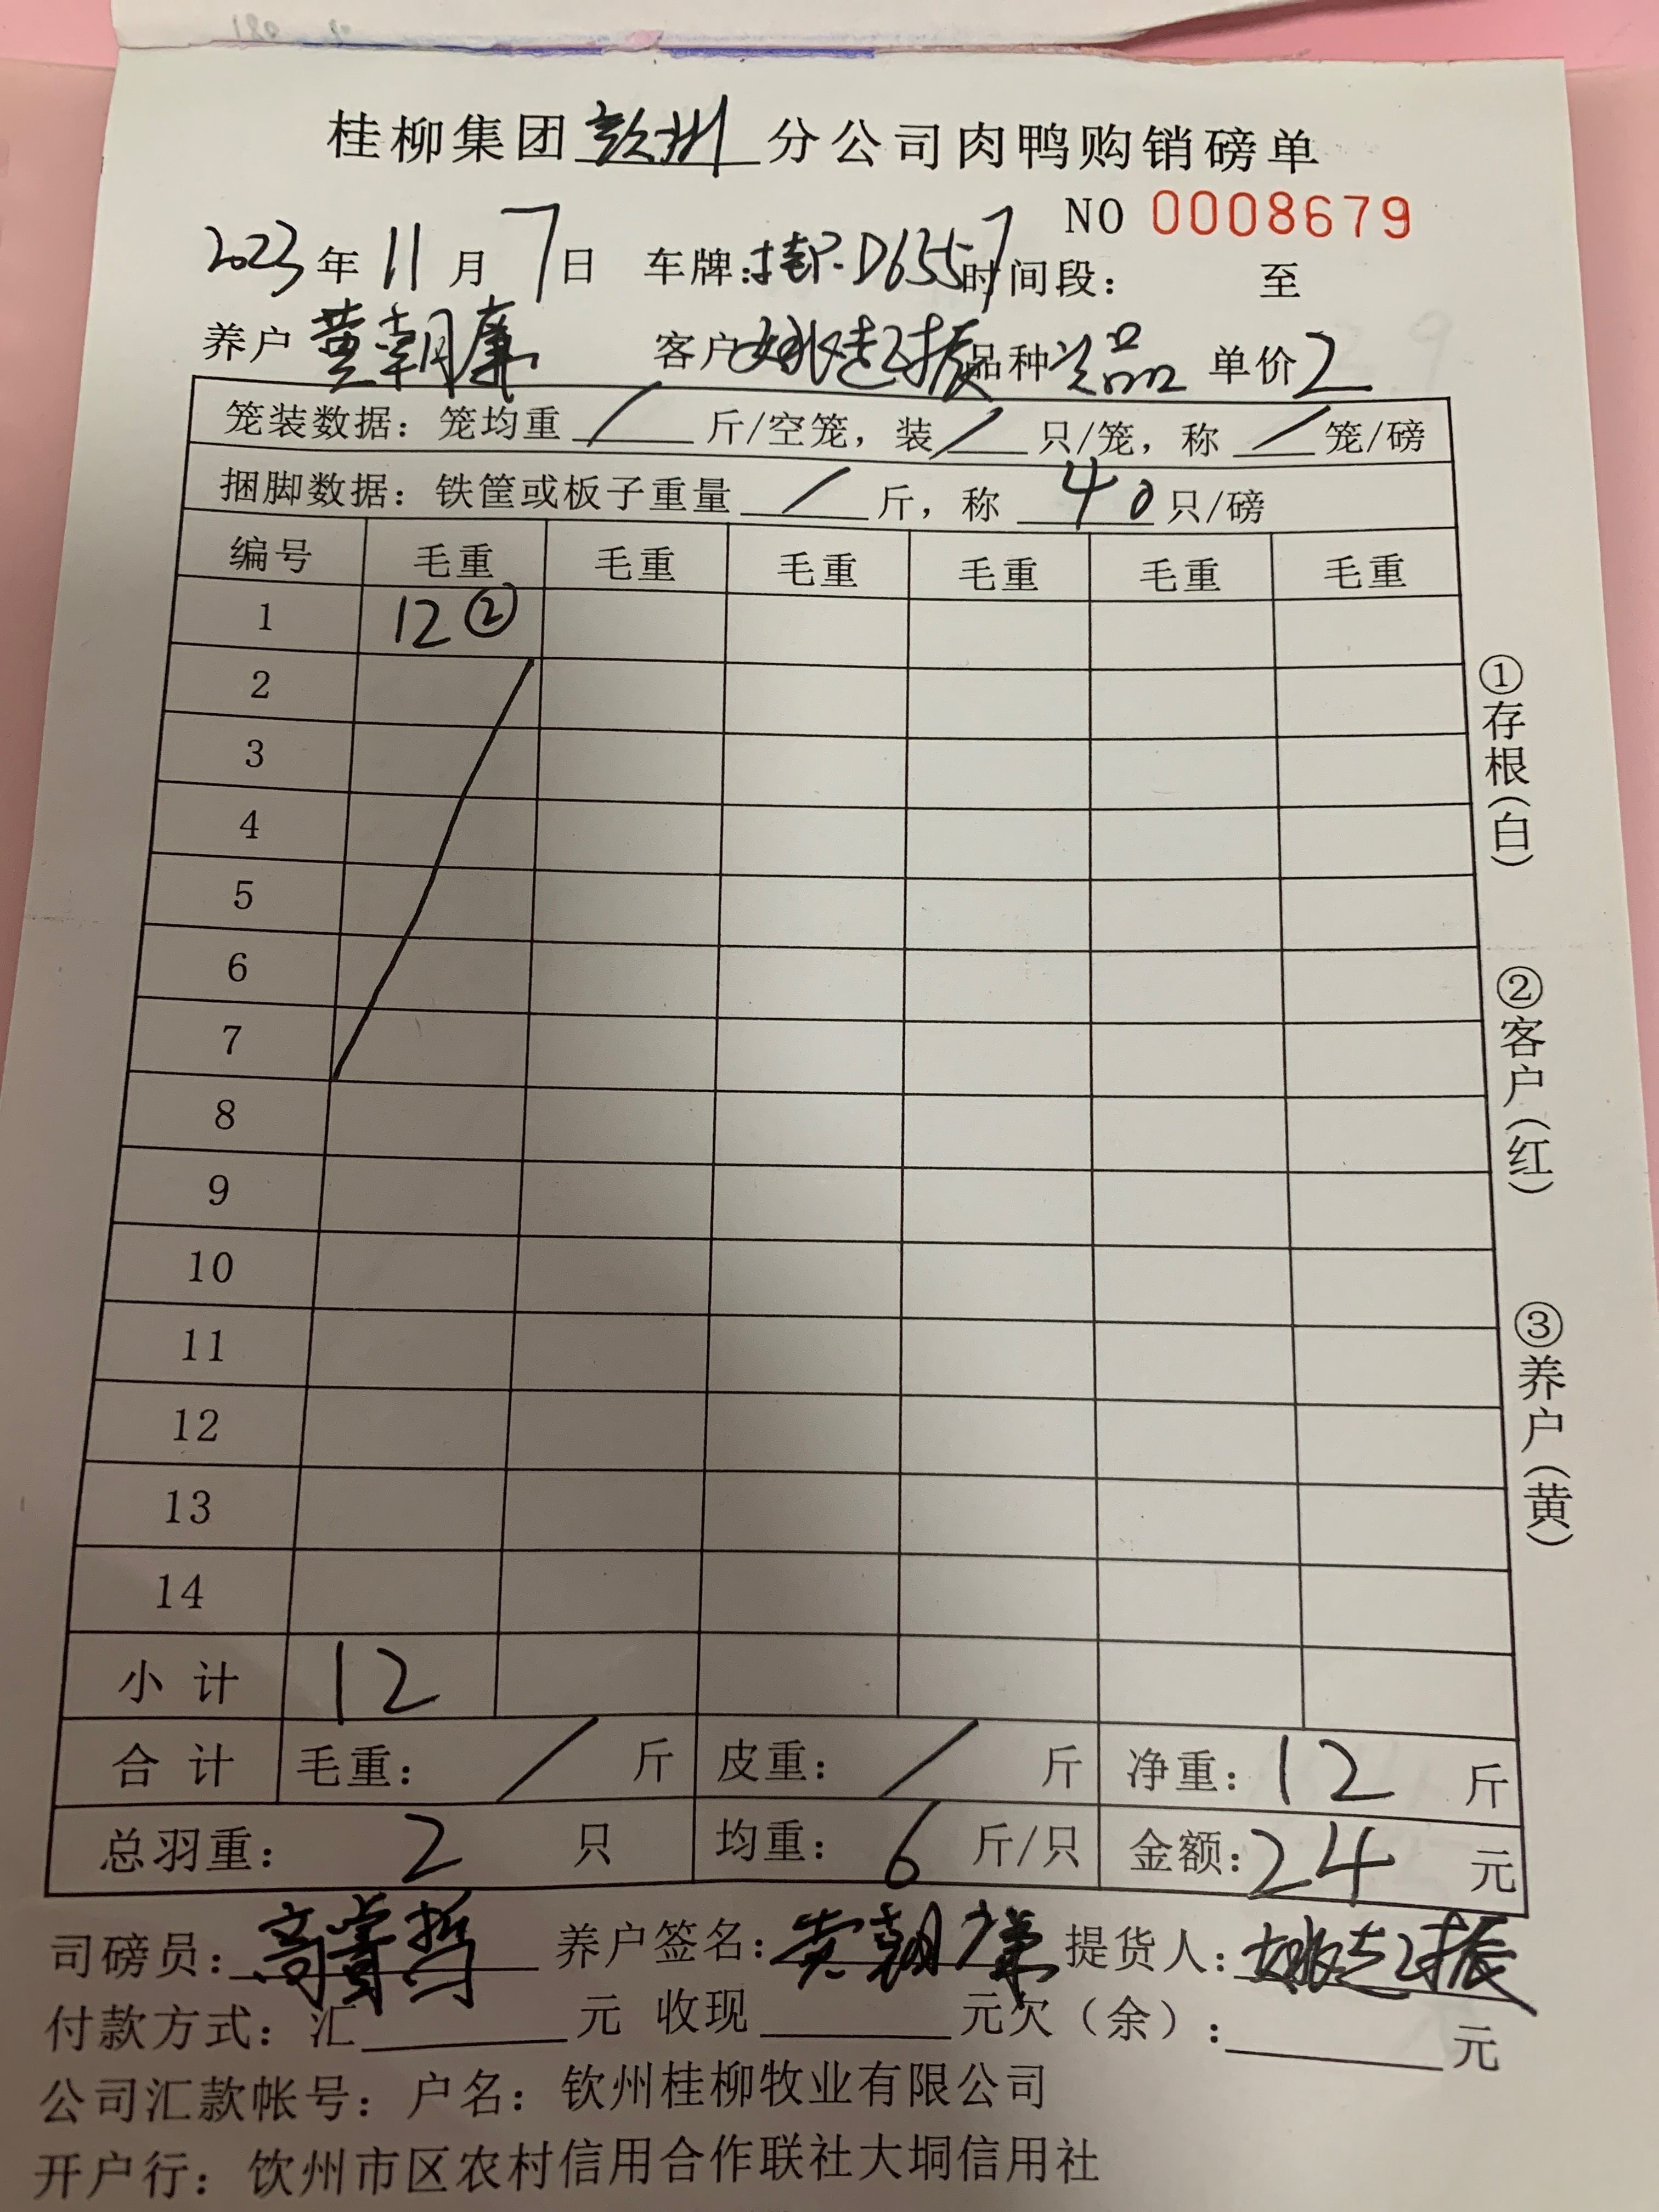 桂柳集团钦州分公司肉鸭购销磅单
NO 0008679
2023年11月7日 车牌：桂P·D6557 时间段： 至
养户 黄朝廉 客户 姚起振 品种 次品 单价 2
笼装数据：笼均重 / 斤/空笼，装 / 只/笼，称 / 笼/磅
捆脚数据：铁筐或板子重量 / 斤，称 40 只/磅
编号 毛重 毛重 毛重 毛重 毛重 毛重
1 12 ②
2
3
4
5
6
7
8
9
10
11
12
13
14
小计 12
合计 毛重： / 斤 皮重： / 斤 净重：12 斤
总羽重： 2 只 均重： 6 斤/只 金额：24 元
司磅员： 养户签名：黄朝廉 提货人：姚起振
付款方式：汇 元 收现 元欠（余）： 元
公司汇款帐号：户名：钦州桂柳牧业有限公司
开户行：钦州市区农村信用合作联社大垌信用社
①存根（白）
②客户（红）
③养户（黄）